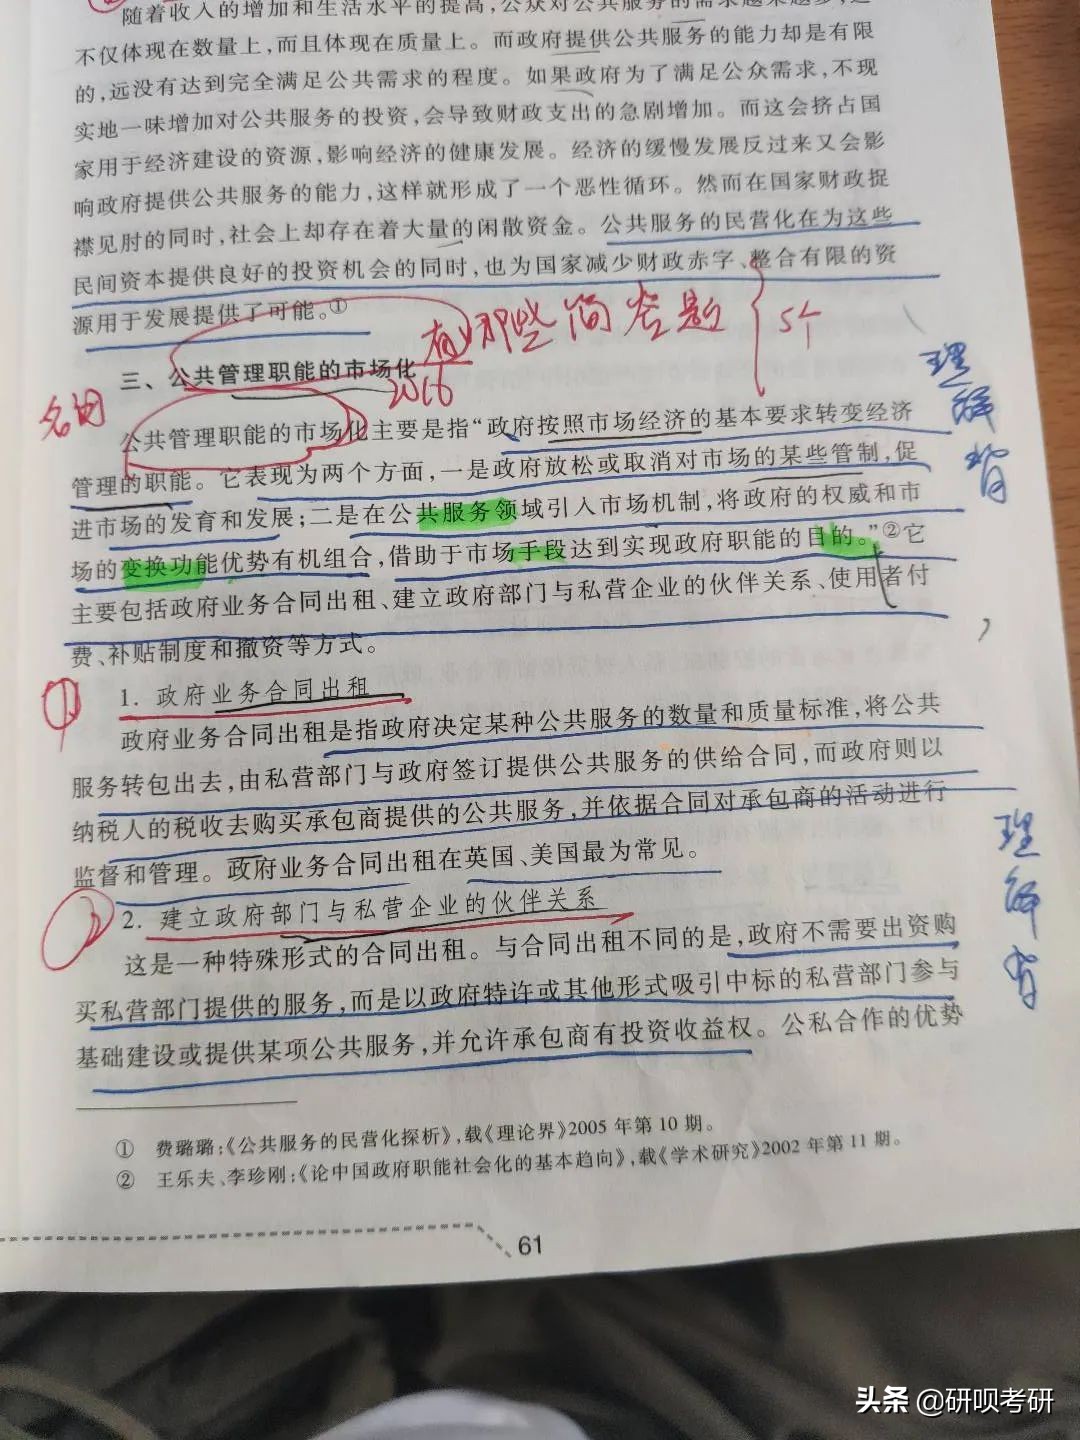 随着收入的增加和生活水平的提高,公众对公共服务的需求越来越多,这
不仅体现在数量上,而且体现在质量上。而政府提供公共服务的能力却是有限
的,远没有达到完全满足公共需求的程度。如果政府为了满足公众需求,不现
实地一味增加对公共服务的投资,会导致财政支出的急剧增加。而这会挤占国
家用于经济建设的资源,影响经济的健康发展。经济的缓慢发展反过来又会影
响政府提供公共服务的能力,这样就形成了一个恶性循环。然而在国家财政捉
襟见肘的同时,社会上却存在着大量的闲散资金。公共服务的民营化在为这些
民间资本提供良好的投资机会的同时,也为国家减少财政赤字、整合有限的资
源用于发展提供了可能。①
有哪些 简答题 5个
三、公共管理职能的市场化
2016
名词
理解背
公共管理职能的市场化主要是指“政府按照市场经济的基本要求转变经济
管理的职能。它表现为两个方面,一是政府放松或取消对市场的某些管制,促
进市场的发育和发展;二是在公共服务领域引入市场机制,将政府的权威和市
场的变换功能优势有机组合,借助于市场手段达到实现政府职能的目的。”②它
主要包括政府业务合同出租、建立政府部门与私营企业的伙伴关系、使用者付
费、补贴制度和撤资等方式。
1. 政府业务合同出租
政府业务合同出租是指政府决定某种公共服务的数量和质量标准,将公共
服务转包出去,由私营部门与政府签订提供公共服务的供给合同,而政府则以
纳税人的税收去购买承包商提供的公共服务,并依据合同对承包商的活动进行
监督和管理。政府业务合同出租在英国、美国最为常见。
理解背
2. 建立政府部门与私营企业的伙伴关系
这是一种特殊形式的合同出租。与合同出租不同的是,政府不需要出资购
买私营部门提供的服务,而是以政府特许或其他形式吸引中标的私营部门参与
基础建设或提供某项公共服务,并允许承包商有投资收益权。公私合作的优势
① 费璐璐:《公共服务的民营化探析》,载《理论界》2005 年第 10 期。
② 王乐夫、李珍刚:《论中国政府职能社会化的基本趋向》,载《学术研究》2002 年第 11 期。
61
头条 @研呗考研